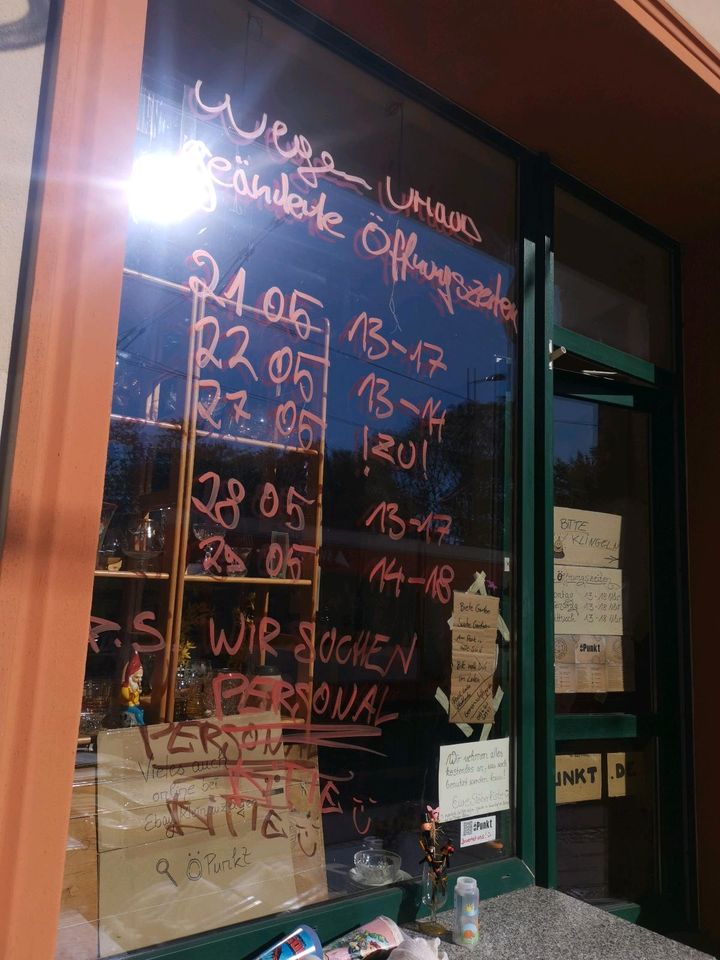 Wegen URLAUB
geänderte Öffnungszeiten
21 05 13-17
22 05 13-14
27 05 !ZU!
28 05 13-17
29 05 14-18
P.S. WIR SUCHEN
PERSONAL
BITTE
Vieles auch
online bei
Ebay Kleinanzeigen
ÖPunkt
Biete Garten
Suche Garten
Wir nehmen alles
kostenlos an, was noch
benutzt werden kann!
ÖPunkt
BITTE
KLINGELN
Öffnungszeiten
Montag 13-18 Uhr
Dienstag 13-18 Uhr
Mittwoch 13-18 Uhr
ÖPunkt
PUNKT.DE